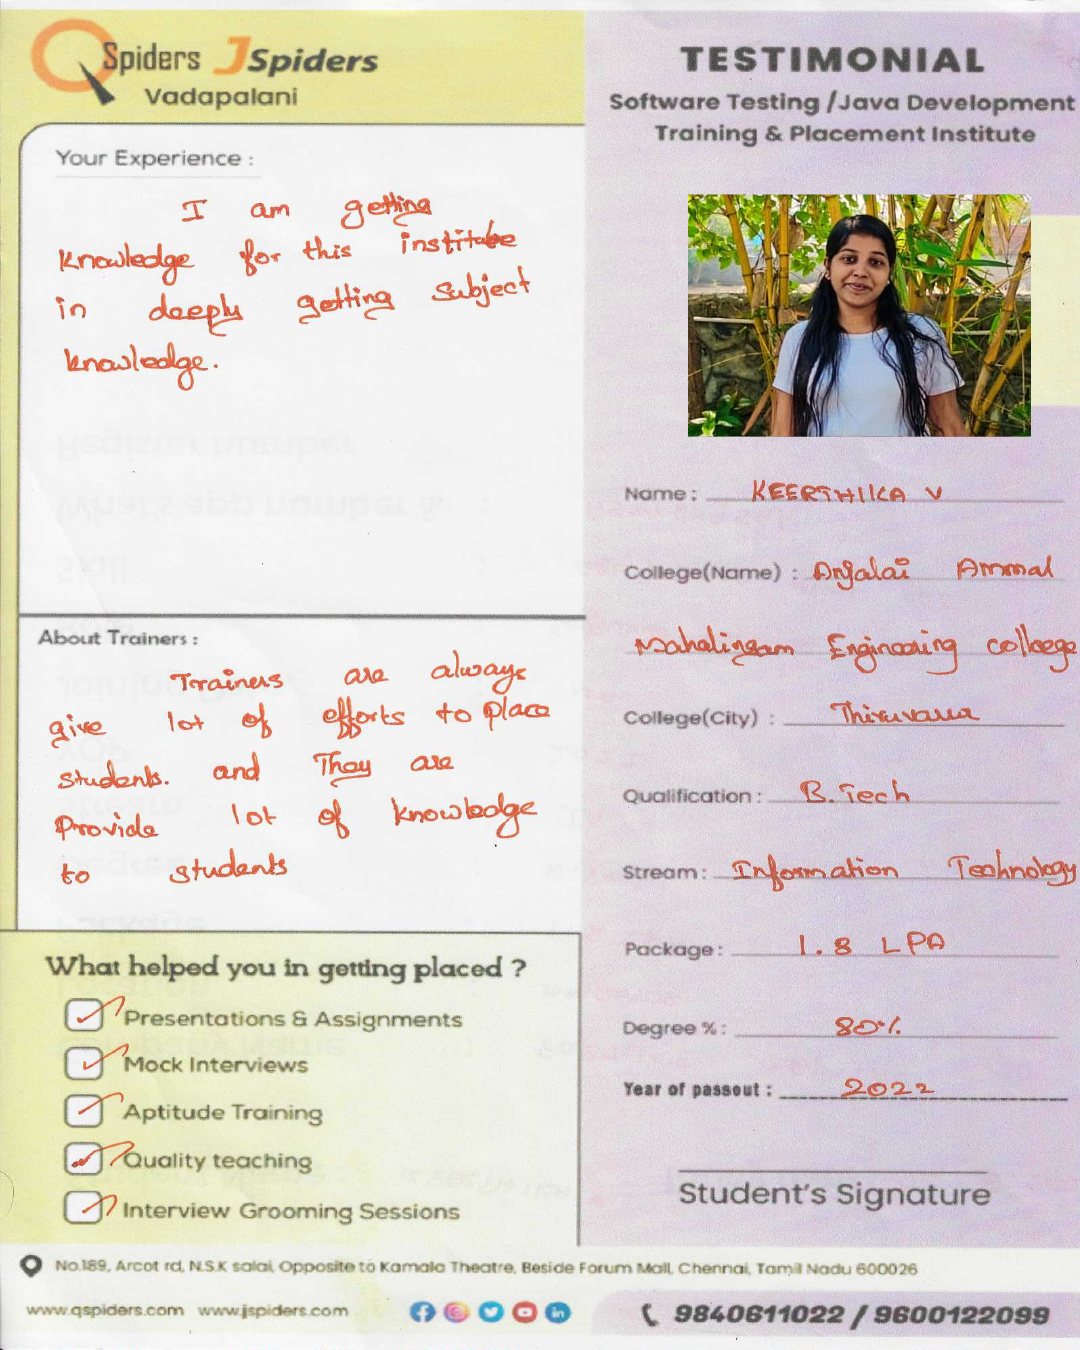 QSpiders JSpiders
Vadapalani
TESTIMONIAL
Software Testing /Java Development
Training & Placement Institute
Your Experience :
I am getting
knowledge for this institute
in deeply getting subject
knowledge.
About Trainers :
Trainers are always
give lot of efforts to place
students. and They are
Provide lot of knowledge
to students
What helped you in getting placed ?
Presentations & Assignments
Mock Interviews
Aptitude Training
Quality teaching
Interview Grooming Sessions
Name : KEERTHIKA V
College(Name) : Anjalai Ammal
Mahalingam Engineering college
College(City) :
Qualification : B.Tech
Stream : Information Technology
Package : 1.8 LPA
Degree % : 80%
Year of passout : 2022
Student's Signature
No.189, Arcot rd, N.S.K salai, Opposite to Kamala Theatre, Beside Forum Mall, Chennai, Tamil Nadu 600026
www.qspiders.com www.jspiders.com
9840611022 / 9600122099